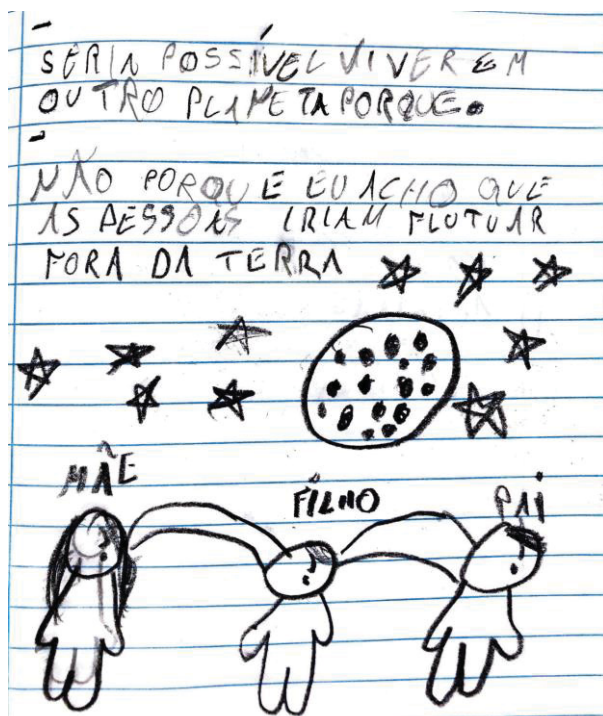 -
SERIA POSSÍVEL VIVER EM
OUTRO PLANETA PORQUE.
-
NÃO PORQUE EU ACHO QUE
AS PESSOAS IRIAM FLUTUAR
FORA DA TERRA
MÃE FILHO PAI